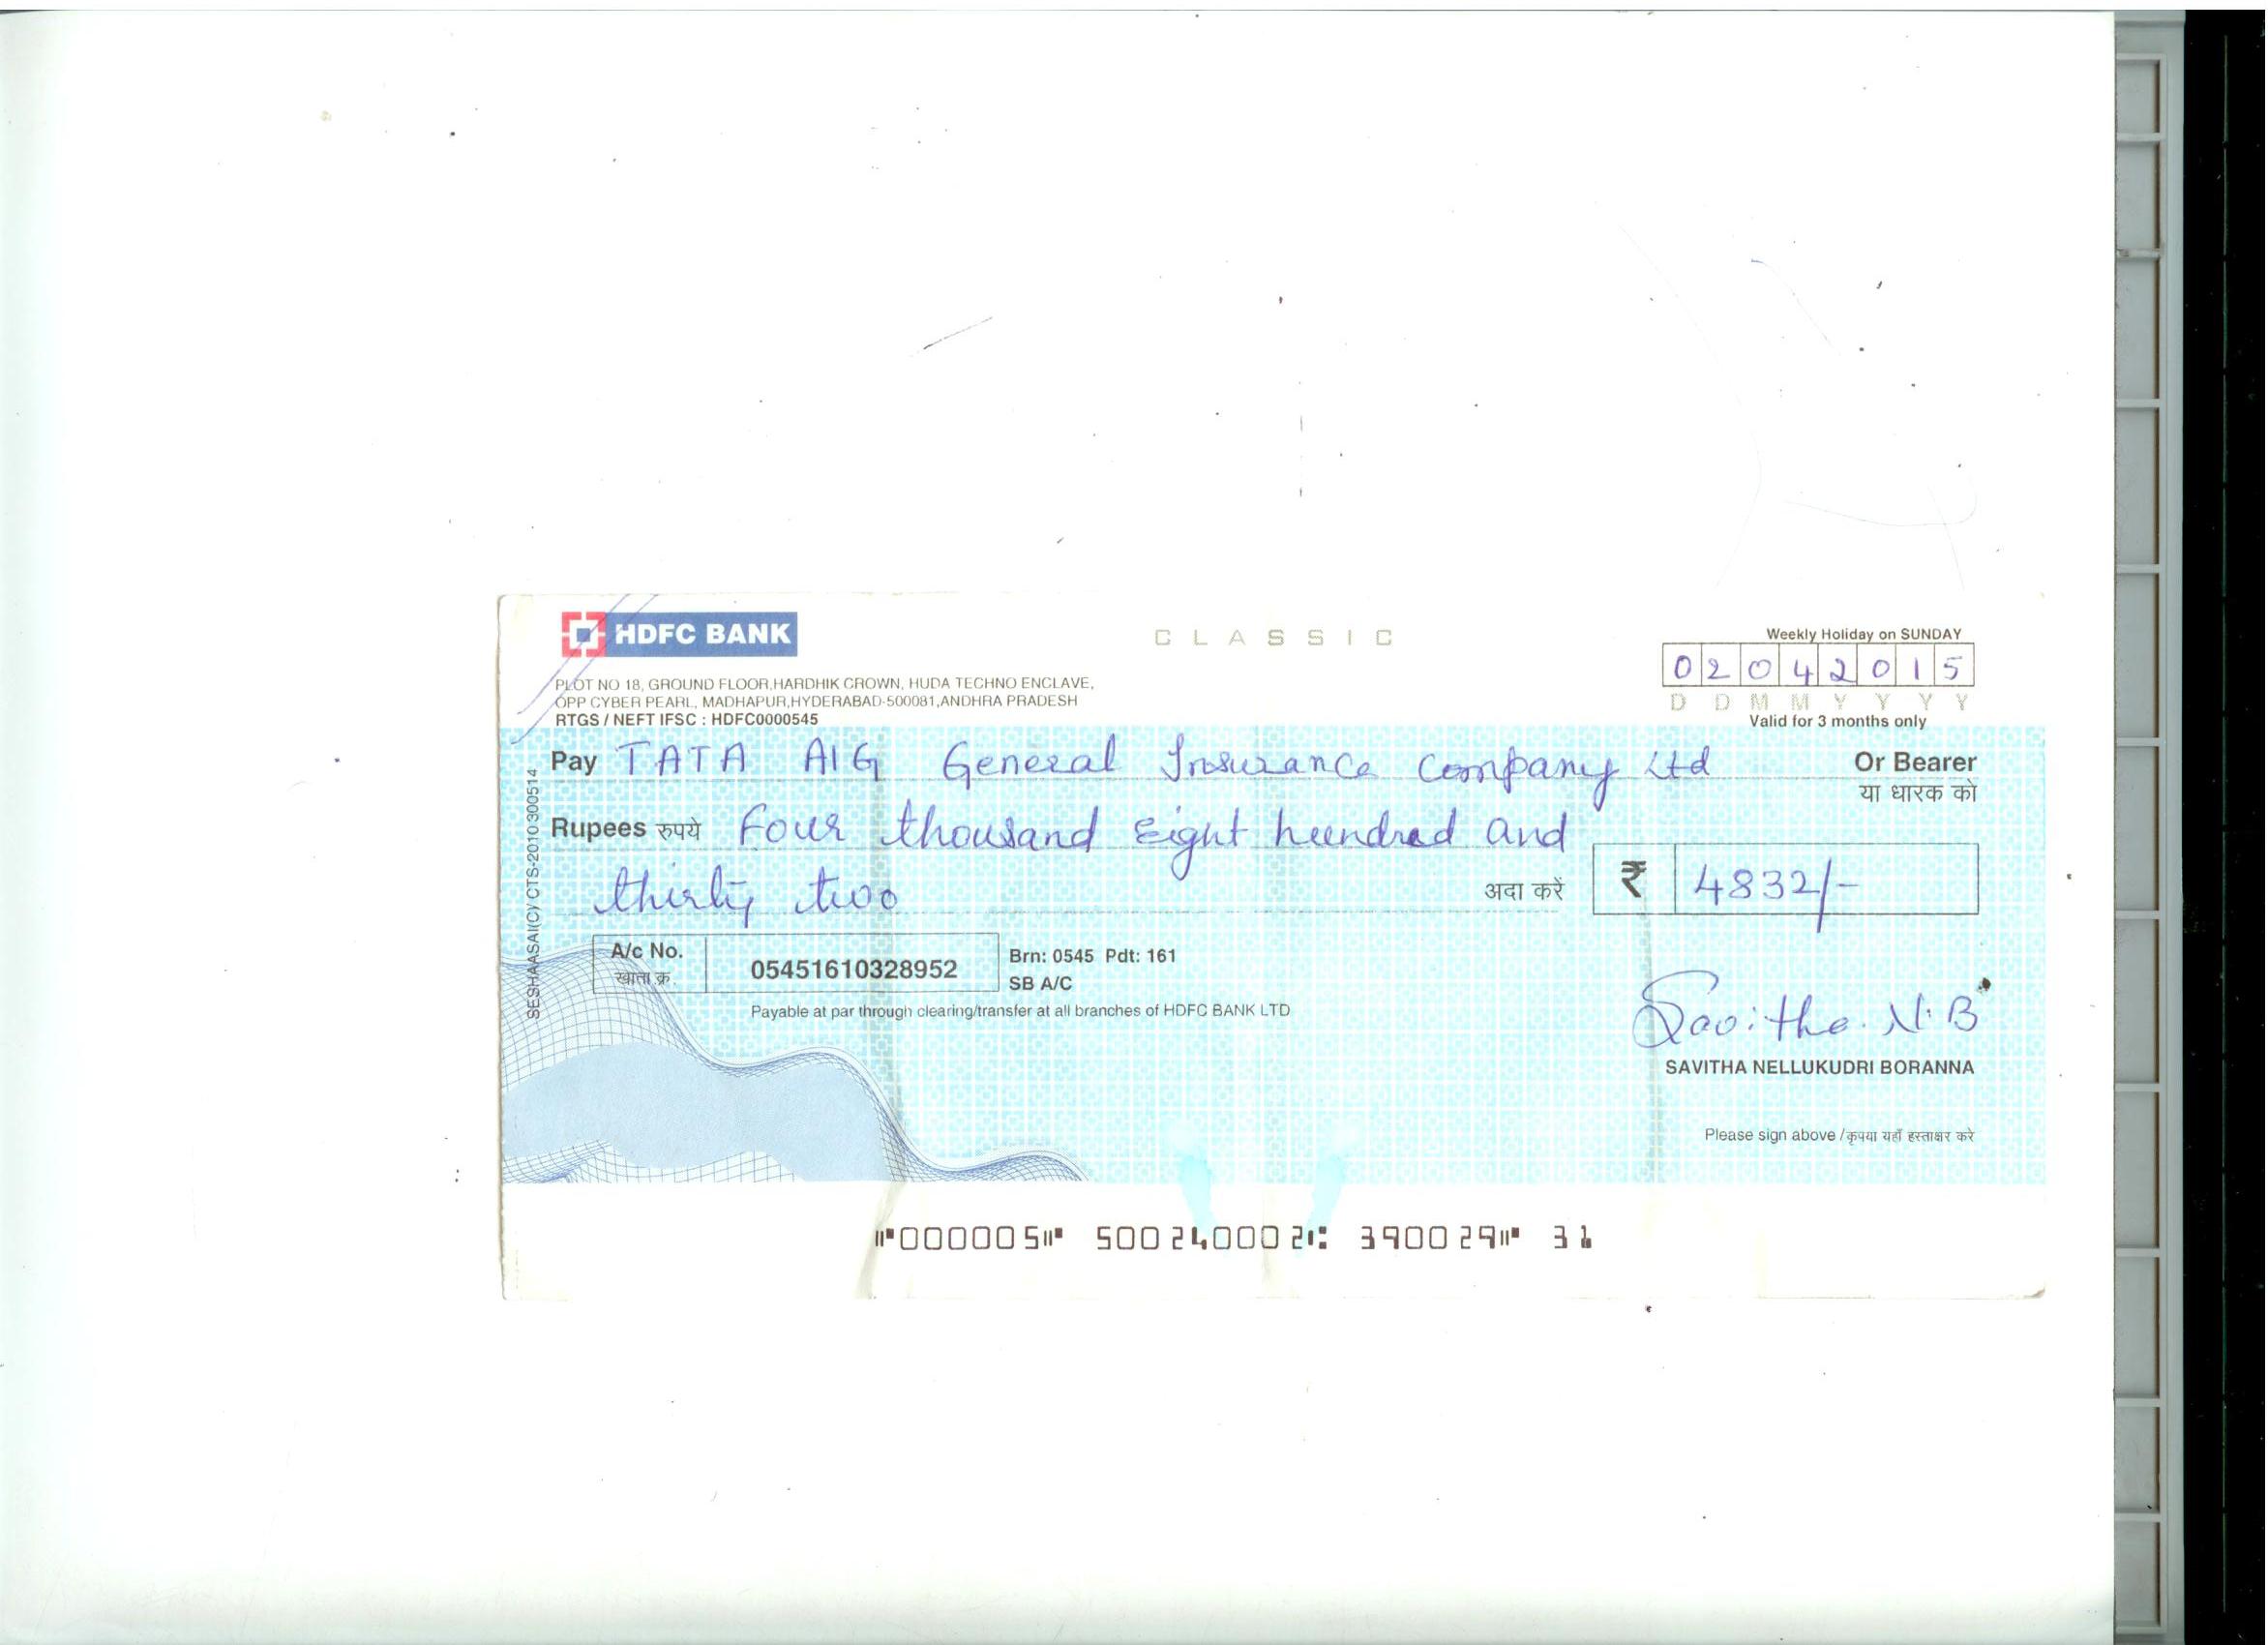 HDFC BANK
CLASSIC
Weekly Holiday on SUNDAY
02042015
D D M M Y Y Y Y
Valid for 3 months only
PLOT NO 18, GROUND FLOOR,HARDHIK CROWN, HUDA TECHNO ENCLAVE,
OPP CYBER PEARL, MADHAPUR,HYDERABAD-500081,ANDHRA PRADESH
RTGS / NEFT IFSC : HDFC0000545
Pay TATA AIG General Insurance Company Ltd Or Bearer
या धारक को
Rupees रुपये Four thousand Eight hundred and
thirty two अदा करें ₹ 4832/-
A/c No. 05451610328952
खाता क्र.
Brn: 0545 Pdt: 161
SB A/C
Payable at par through clearing/transfer at all branches of HDFC BANK LTD
Savitha. N.B
SAVITHA NELLUKUDRI BORANNA
Please sign above / कृपया यहाँ हस्ताक्षर करे
SESHAASAI(C) CTS-2010 300514
⑈000005⑈ 500240002⑆ 390029⑈ 31